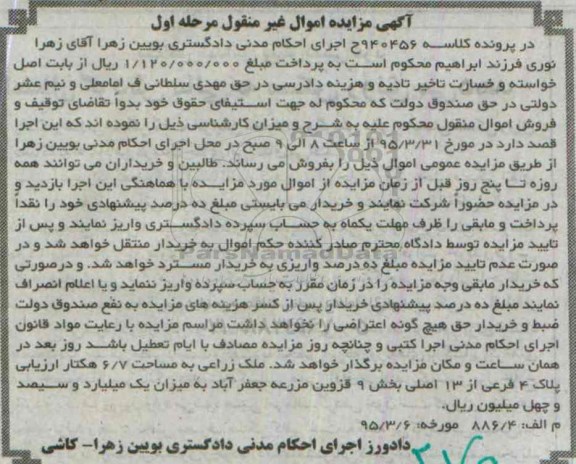 آگهی مزایده اموال غیر منقول مرحله اول
در پرونده کلاسه ۹۴۰۴۵۶ح اجرای احکام مدنی دادگستری بویین زهرا آقای زهرا
نوری فرزند ابراهیم محکوم است به پرداخت مبلغ ۱/۱۲۰/۰۰۰/۰۰۰ ریال از بابت اصل
خواسته و خسارت تاخیر تادیه و هزینه دادرسی در حق مهدی سلطانی ف امامعلی و نیم عشر
دولتی در حق صندوق دولت که محکوم له جهت استیفای حقوق خود بدوا تقاضای توقیف و
فروش اموال منقول محکوم علیه به شرح و میزان کارشناسی ذیل را نموده اند که این اجرا
قصد دارد در مورخ ۹۵/۳/۳۱ از ساعت ۸ الی ۹ صبح در محل اجرای احکام مدنی بویین زهرا
از طریق مزایده عمومی اموال ذیل را بفروش می رساند. طالبین و خریداران می توانند همه
روزه تا پنج روز قبل از زمان مزایده از اموال مورد مزایده با هماهنگی این اجرا بازدید و
در مزایده حضوراً شرکت نمایند و خریدار می بایستی مبلغ ده درصد پیشنهادی خود را نقداً
پرداخت و مابقی را ظرف مهلت یکماه به حساب سپرده دادگستری واریز نمایند و پس از
تایید مزایده توسط دادگاه محترم صادر کننده حکم اموال به خریدار منتقل خواهد شد و در
صورت عدم تایید مزایده مبلغ ده درصد واریزی به خریدار مسترد خواهد شد. و درصورتی
که خریدار مابقی وجه مزایده را در زمان مقرر به حساب سپرده واریز ننماید و یا اعلام انصراف
نمایند مبلغ ده درصد پیشنهادی خریدار پس از کسر هزینه های مزایده به نفع صندوق دولت
ضبط و خریدار حق هیچ گونه اعتراضی را نخواهد داشت مراسم مزایده با رعایت مواد قانون
اجرای احکام مدنی اجرا کتبی و چنانچه روز مزایده مصادف با ایام تعطیل باشد روز بعد در
همان ساعت و مکان مزایده برگذار خواهد شد. ملک زراعی به مساحت ۶/۷ هکتار ارزیابی
پلاک ۴ فرعی از ۱۳ اصلی بخش ۹ قزوین مزرعه جعفر آباد به میزان یک میلیارد و سیصد
و چهل میلیون ریال.
م الف: ۸۸۶/۴ مورخه: ۹۵/۳/۶
دادورز اجرای احکام مدنی دادگستری بویین زهرا- کاشی